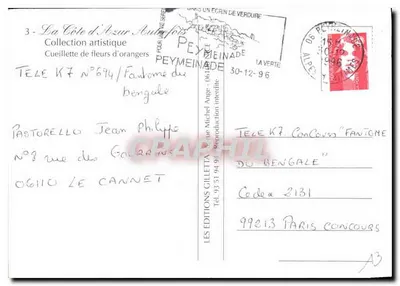 3 - La Côte d'Azur Autrefois
Collection artistique
Cueillette de fleurs d'orangers
TELE K7 N°694/Fantome du
bengale
PASTORELLO Jean Philippe
N°8 rue des
06110 LE CANNET
DANS UN ECRIN DE VERDURE
PEYMEINADE
PEYMEINADE
LA VERTE
30-12-96
PEYMEINADE
1996
LES EDITIONS GILLETTA
Reproduction interdite
CPARAMA
TELE K7 CONCOURS "FANTOME
DU BENGALE"
Cedex 2131
99213 PARIS CONCOURS
A3